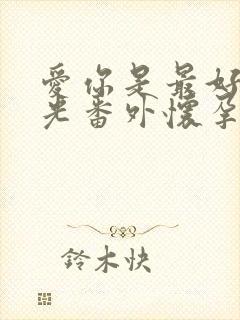 愛你是最好
光番外懷孕
鈴木快